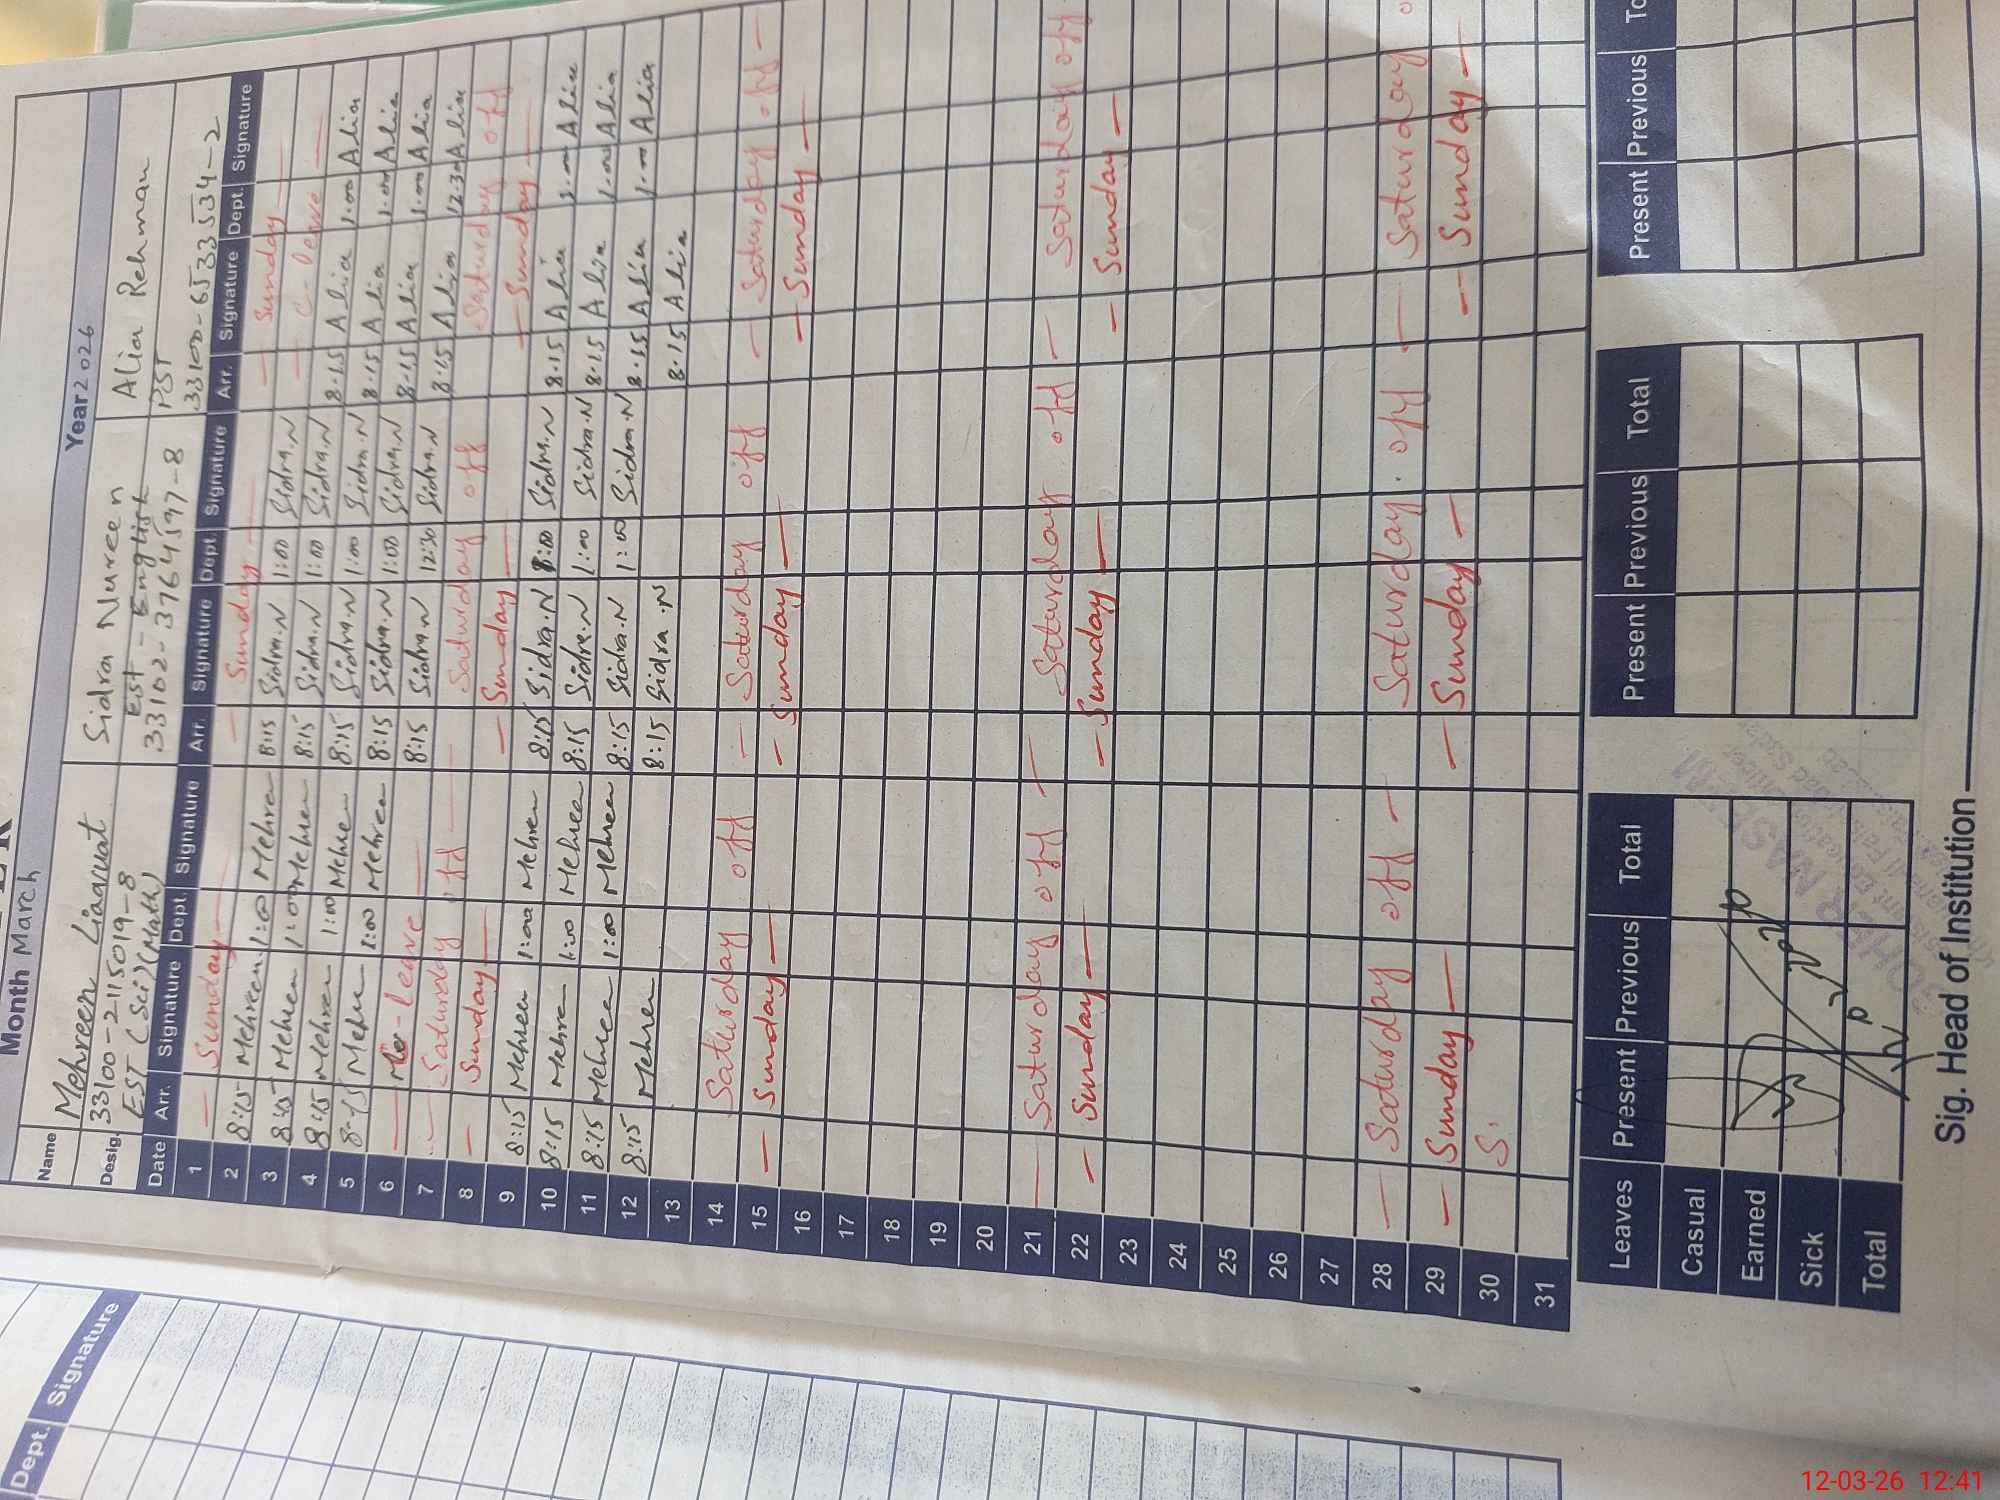 Month March Year 2026
Name Mehreen Liaquat Sidra Nureen Alia Rehman
Desig. 33100-2115019-8 EST - English PST
EST (Sci)(Math) 33102-3764597-8 33100-6533534-2
Date Arr. Signature Dept. Signature Arr. Signature Dept. Signature Arr. Signature Dept. Signature
1 — Sunday — — Sunday — — Sunday —
2 8:15 Mehreen 1:00 Mehren 8:15 Sidra.N 1:00 Sidra.N — C-leave —
3 8:15 Mehren 1:00 Mehren 8:15 Sidra.N 1:00 Sidra.N 8.15 Alia 1.00 Alia
4 8:15 Mehren 1:00 Mehre 8:15 Sidra.N 1:00 Sidra.N 8.15 Alia 1.00 Alia
5 8:15 Mehre 1:00 Mehren 8:15 Sidra.N 1:00 Sidra.N 8.15 Alia 1.00 Alia
6 leave — 8:15 Sidra.N 12:30 Sidra.N 8.15 Alia 12.30 Alia
7 Saturday off — Saturday off Saturday off
8 — Sunday — — Sunday — — Sunday —
9 8:15 Mehren 1:00 Mehren 8:15 Sidra.N 1:00 Sidra.N 8.15 Alia 1.00 Alia
10 8:15 Mehre 1:00 Mehree 8:15 Sidra.N 1:00 Sidra.N 8.15 Alia 1.00 Alia
11 8:15 Mehree 1:00 Mehree 8:15 Sidra.N 1:00 Sidra.N 8.15 Alia 1.00 Alia
12 8:15 Mehren 8:15 Sidra.N 8.15 Alia
13
14 Saturday off — Saturday off — Saturday off —
15 — Sunday — — Sunday — — Sunday —
16
17
18
19
20
21 — Saturday off — Saturday off — Saturday off
22 — Sunday — — Sunday — — Sunday —
23
24
25
26
27
28 — Saturday off — Saturday off — Saturday
29 — Sunday — — Sunday — — Sunday —
30 S.
31
Leaves Present Previous Total Present Previous Total Present Previous
Casual
Earned
Sick
Total
Sig. Head of Institution
Dept. Signature
12-03-26 12:41